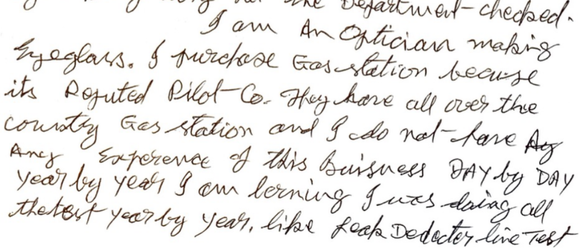 the Department-checked.
I am An Optician making
Eyeglass. I purchase Gas station because
its Reputed Pilot-Co. They have all over the
country Gas station and I do not-have Ay
Any Experence of this Buisness DAY by DAY
year by year I am lerning I was doing all
the test year by year, like Leak Dedecter line Test